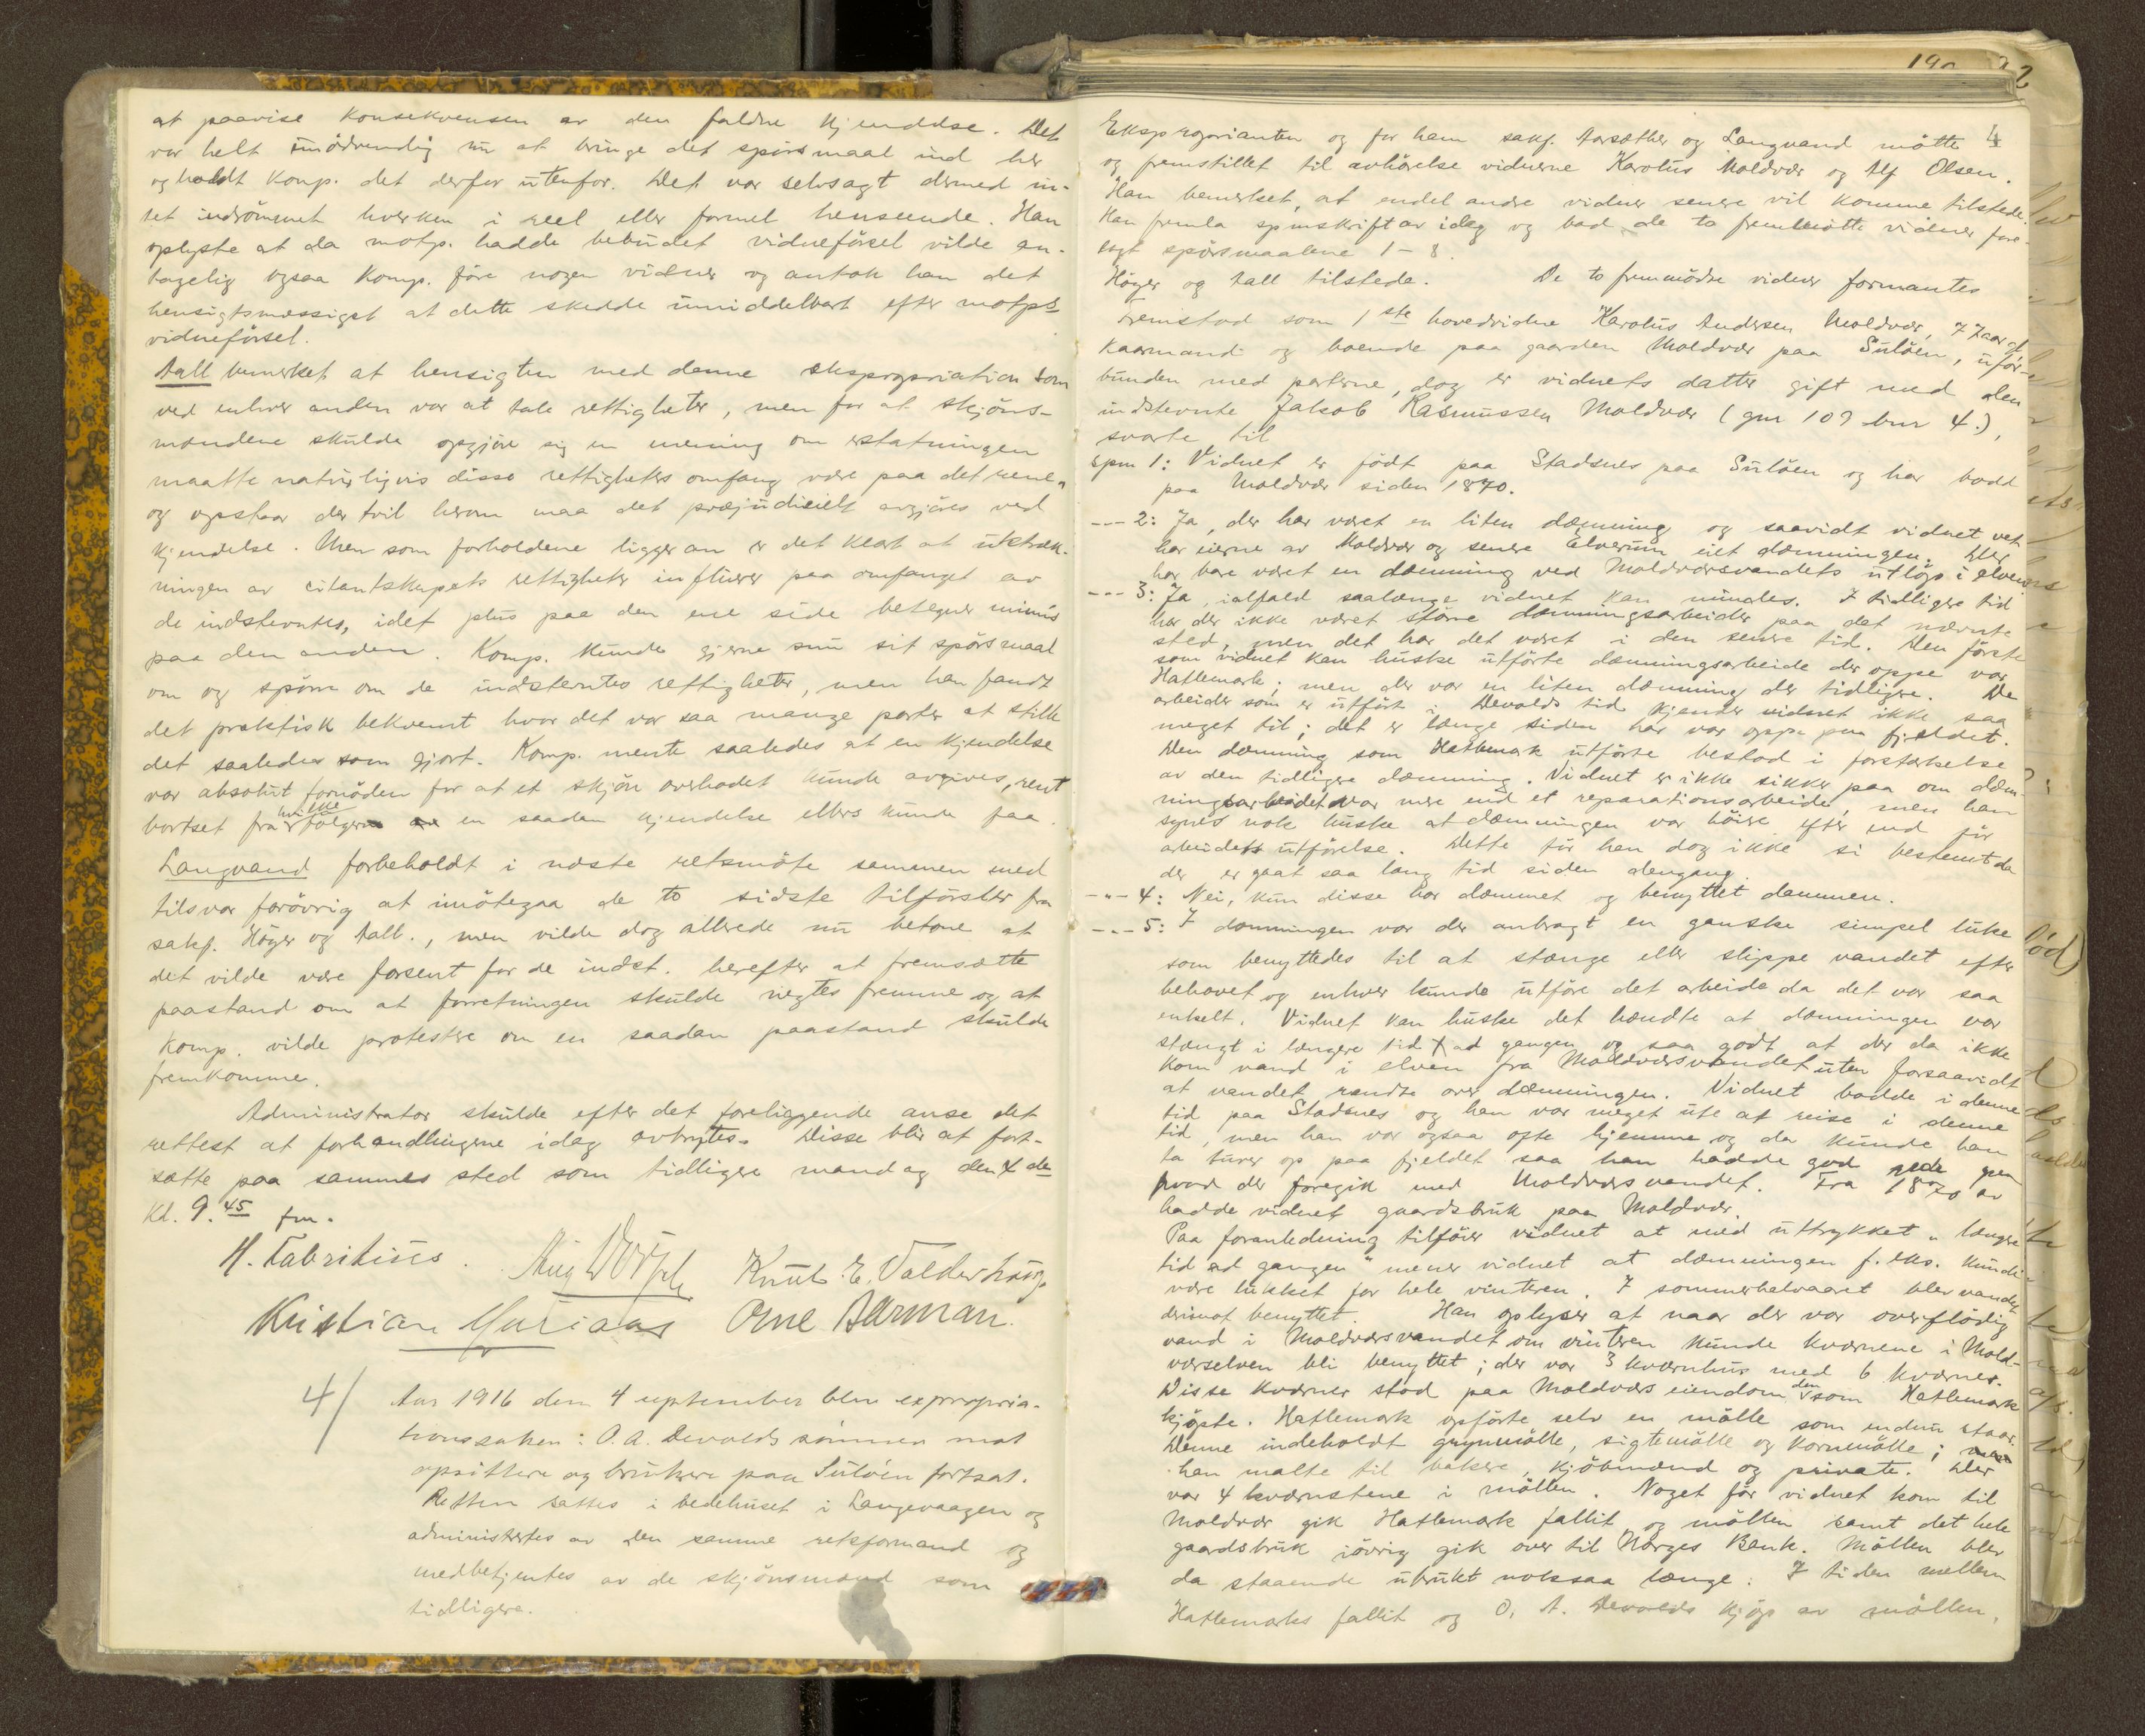 at paavise konsekvensen av den faldne kjendelse. Det
var helt unödvendig nu at bringe det spörsmaal ind her
og holdt komp. det derfor utenfor. Det var selvsagt dermed in-
tet indrömmet hverken i reel eller formel henseende. Han
oplyste at da motp. hadde bebudet vidneförsel vilde an-
tagelig ogsaa komp. före nogen vidner og antok han det
hensigtsmæssigst at dette skedde umiddelbart efter motps
vidneförsel.
Dall bemerket at hensigten med denne ekspropriation som
ved enhver anden var at tale rettigheter, men for at skjöns-
mændene skulde opgjöre sig en mening om erstatningen
maatte naturligvis disse rettigheters omfang være paa det rene,
og opstaar der tvil herom maa det præjudicielt avgjöres ved
kjendelse. Men som forholdene ligger an er det klart at utstræk-
ningen av citantskapets rettigheter influerer paa omfanget av
de indstevntes, idet plus paa den ene side betegner minus
paa den anden. Komp. kunde gjerne snu sit spörsmaal
om og spörre om de indstevntes rettigheter, men han fandt
det praktisk bekvemt hvor det var saa mange parter at stille
det saaledes som gjort. Komp. mente saaledes at en kjendelse
var absolut fornöden for at et skjön overhodet kunde avgives, rent
bortset fra hvilke fölger en saadan kjendelse ellers kunde faa.
Langvand forbeholdt i næste retsmöte sammen med
tilsvar forövrig at imötegaa de to sidste tilförsler fra
sakf. Höyer og Dall., men vilde dog allerede nu betone at
det vilde være forsent for de indst. herefter at fremsætte
paastand om at forretningen skulde negtes fremme og at
komp. vilde protestere om en saadan paastand skulde
fremkomme.
Administrator skulde efter det foreliggende anse det
rettest at forhandlingerne idag avbrytes. Disse blir at fort-
sætte paa sammes sted som tidligere mandag den 4 de
kl. 9.45 fm.
H. Fabritius. Knut E. Valderhaug.
Kristian Arne Aarman.
4/ Aar 1916 den 4 september blev expropria-
tionssaken: O. A. Devolds sönner mot
opsittere og brukere paa Sulöen fortsat.
Retten sattes i bedehuset i Langevaagen og
administrertes av den samme retsformand og
medbetjentes av de skjönsmænd som
tidligere.
4
Eksproprianten og for ham sakf. Aarsæther og Langvand mötte
og fremstillet til avhörelse vidnerne Karolus Moldvær og Alf Olsen.
Han bemerket, at endel andre vidner senere vil komme tilstede.
Han fremla spmskrift av idag og bad de to fremmötte vidner fore-
lagt spörsmaalene 1 - 8.
Höyer og Dall tilstede. De to fremmödte vidner formantes
Fremstod som 1 ste hovedvidne Karolus Andersen Moldvær, 77 aar gl
kaarmand og boende paa gaarden Moldvær paa Sulöen, ufor-
bunden med parterne, dog er vidnets datter gift med den
indstevnte Jakob Rasmussen Moldvær (gnr 109 bnr 4.),
svarte til
spm 1: Vidnet er födt paa Stadsnes paa Sulöen og har bodd
paa Moldvær siden 1870.
--- 2: Ja, der har været en liten dæmning og saavidt vidnet vet
har eierne av Moldvær og senere Elverum eiet dæmningen. Der
har bare været en dæmning ved Moldværsvandets utlöp i elven
--- 3: Ja, ialfald saalænge vidnet kan mindes. I tidligere tid
har der ikke været större dæmningsarbeider paa det nævnte
sted, men det har det været i den senere tid. Den förste
som vidnet kan huske utförte dæmningsarbeide der oppe var
Hatlemark; men der var en liten dæmning der tidligere. De
arbeider som er utfört i Devolds tid kjender vidnet ikke saa
meget til; det er længe siden han var oppe paa fjeldet.
Den dæmning som Hatlemark utförte bestod i forstærkelse
av den tidligere dæmning. Vidnet er ikke sikker paa om dæm-
ningsarbeidet var mere end et reparationsarbeide, men han
synes nok huske at dæmningen var höiere efter end för
arbeidets utförelse. Dette tör han dog ikke si bestemt da
der er gaat saa lang tid siden dengang.
-"- 4: Nei, kun disse har dæmmet og benyttet dammen.
--- 5: I dæmningen var der anbragt en ganske simpel luke
som benyttedes til at stænge eller slippe vandet efter
behovet og enhver kunde utföre det arbeide da det var saa
enkelt. Vidnet kan huske det hændte at dæmningen var
stængt i længere tid ad gangen og saa godt at der da ikke
kom vand i elven fra Moldværsvandet uten forsaavidt
at vandet randt over dæmningen. Vidnet bodde i denne
tid paa Stadsnes og han var meget ute at reise i denne
tid, men han var ogsaa ofte hjemme og da kunde han
ta turer op paa fjeldet saa han hadde god rede paa
hvad der foregik med Moldværsvandet. Fra 1870 av
hadde vidnet gaardsbruk paa Moldvær.
Paa foranledning tilföier vidnet at med uttrykket „længre
tid ad gangen" mener vidnet at dæmningen f. eks. kunde
være lukket for hele vinteren. I sommerhalvaaret blev vandet
derimot benyttet. Han oplyser at naar der var overflödig
vand i Moldværsvandet om vinteren kunde kvernene i Mold-
værselven bli benyttet; der var 3 kvernhus med 6 kverner.
Disse kverner stod paa Moldværs eiendom den som Hatlemark
kjöpte. Hatlemark opförte selv en mölle som endnu staar.
Denne indeholdt grynmölle, sigtemölle og kornmölle;
han malte til bakere, kjöbmænd og private. Der
var 4 kvernstene i möllen. Noget för vidnet kom til
Moldvær gik Hatlemark fallit og möllen samt det hele
gaardsbruk iövrig gik over til Norges Bank. Möllen blev
da staaende ubrukt noksaa længe: I tiden mellem
Hatlemarks fallit og O. A. Devolds kjöp av möllen,